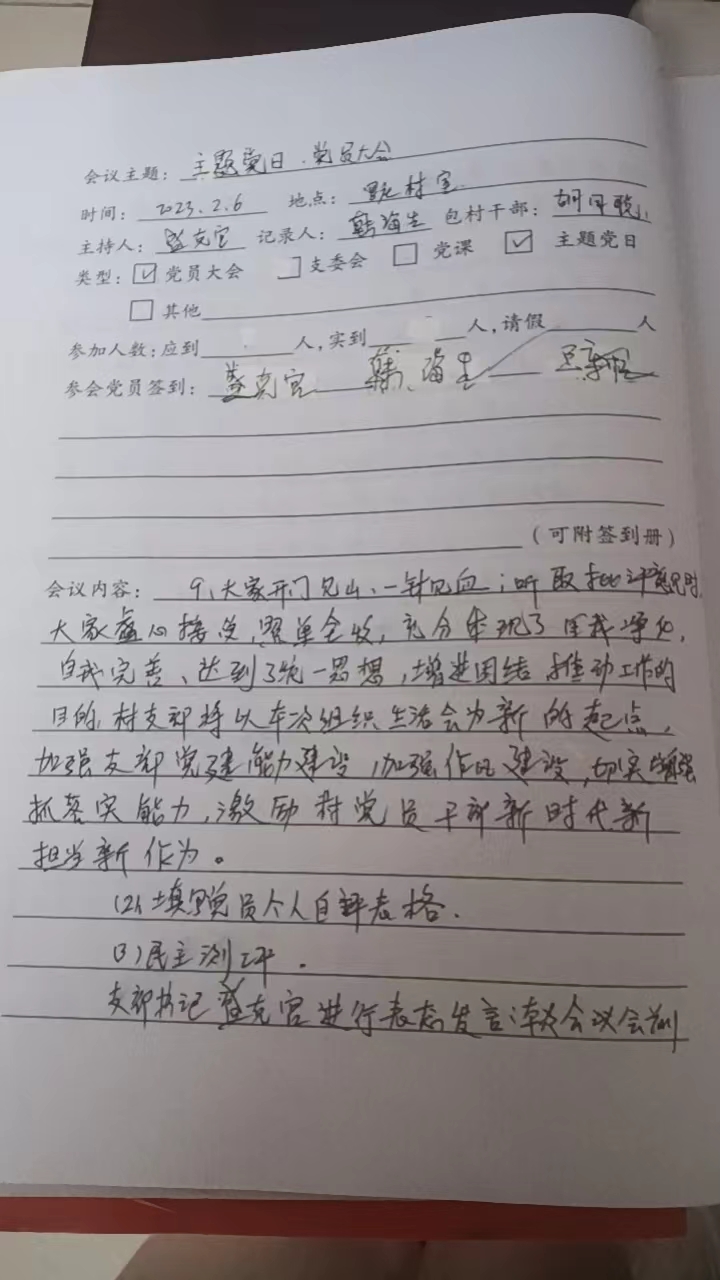 会议主题：主题党日、党员大会
时间：2023.2.6 地点：村室
主持人：克官 记录人：韩海生 包村干部：胡
类型：☑党员大会 □支委会 □党课 ☑主题党日
□其他
参加人数：应到 人，实到 人，请假 人
参会党员签到：克官 韩海生
（可附签到册）
会议内容：大家开门见山、一针见血；听取批评意见时
大家虚心接受，照单全收，充分体现了自我净化，
自我完善、达到了统一思想，增进团结 推动工作的
目的，村支部将以本次组织生活会为新的起点，
加强支部党建能力建设，加强作风建设，切实增强
抓落实能力，激励村党员干部新时代新
担当新作为。
(2)、填写党员个人自评表格.
(3)民主测评.
支部书记克官进行表态发言：会议会前